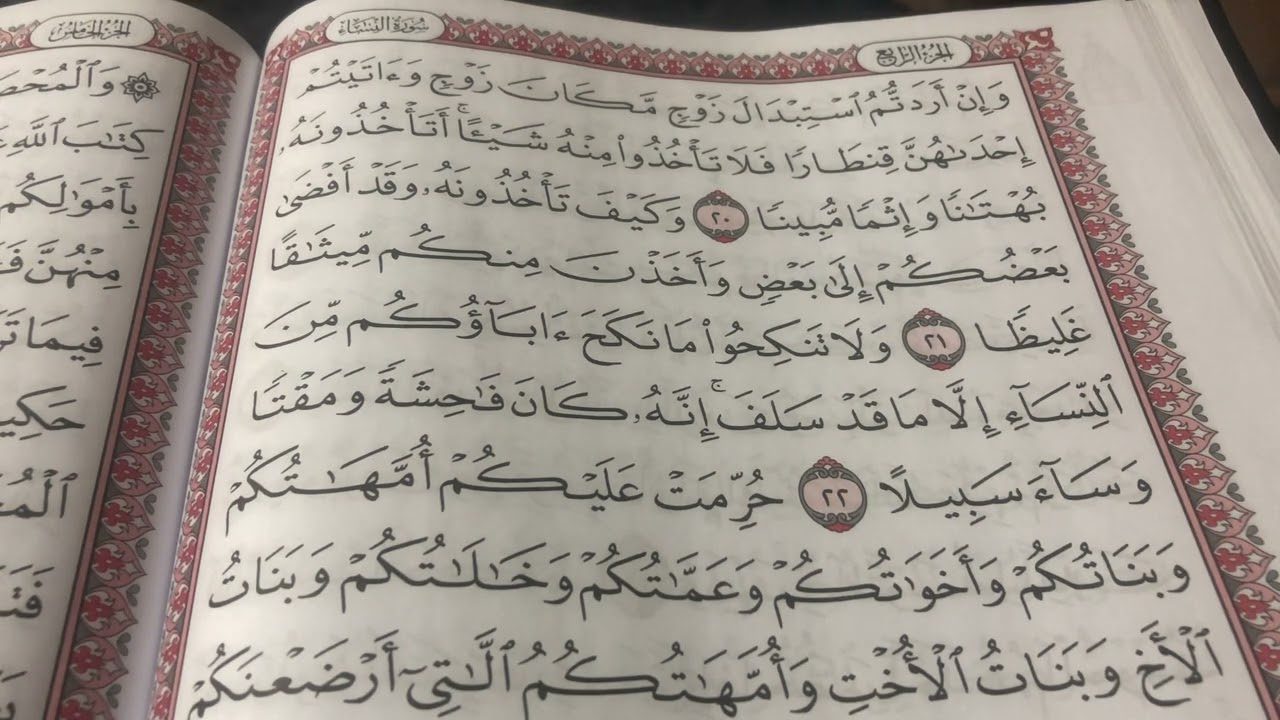 الجزء الرابع
سورة النساء
وَإِنْ أَرَدتُّمُ ٱسْتِبْدَالَ زَوْجٍ مَّكَانَ زَوْجٍ وَءَاتَيْتُمْ
إِحْدَىٰهُنَّ قِنطَارًا فَلَا تَأْخُذُوا۟ مِنْهُ شَيْـًٔا ۚ أَتَأْخُذُونَهُۥ
بُهْتَـٰنًا وَإِثْمًا مُّبِينًا ٢٠ وَكَيْفَ تَأْخُذُونَهُۥ وَقَدْ أَفْضَىٰ
بَعْضُكُمْ إِلَىٰ بَعْضٍ وَأَخَذْنَ مِنكُم مِّيثَـٰقًا
غَلِيظًا ٢١ وَلَا تَنكِحُوا۟ مَا نَكَحَ ءَابَآؤُكُم مِّنَ
ٱلنِّسَآءِ إِلَّا مَا قَدْ سَلَفَ ۚ إِنَّهُۥ كَانَ فَـٰحِشَةً وَمَقْتًا
وَسَآءَ سَبِيلًا ٢٢ حُرِّمَتْ عَلَيْكُمْ أُمَّهَـٰتُكُمْ
وَبَنَاتُكُمْ وَأَخَوَٰتُكُمْ وَعَمَّـٰتُكُمْ وَخَـٰلَـٰتُكُمْ وَبَنَاتُ
ٱلْأَخِ وَبَنَاتُ ٱلْأُخْتِ وَأُمَّهَـٰتُكُمُ ٱلَّـٰتِىٓ أَرْضَعْنَكُمْ
الجزء الخامس
۞ وَٱلْمُحْصَ
كِتَـٰبَ ٱللَّهِ
بِأَمْوَٰلِكُم
مِنْهُنَّ
فِيمَا